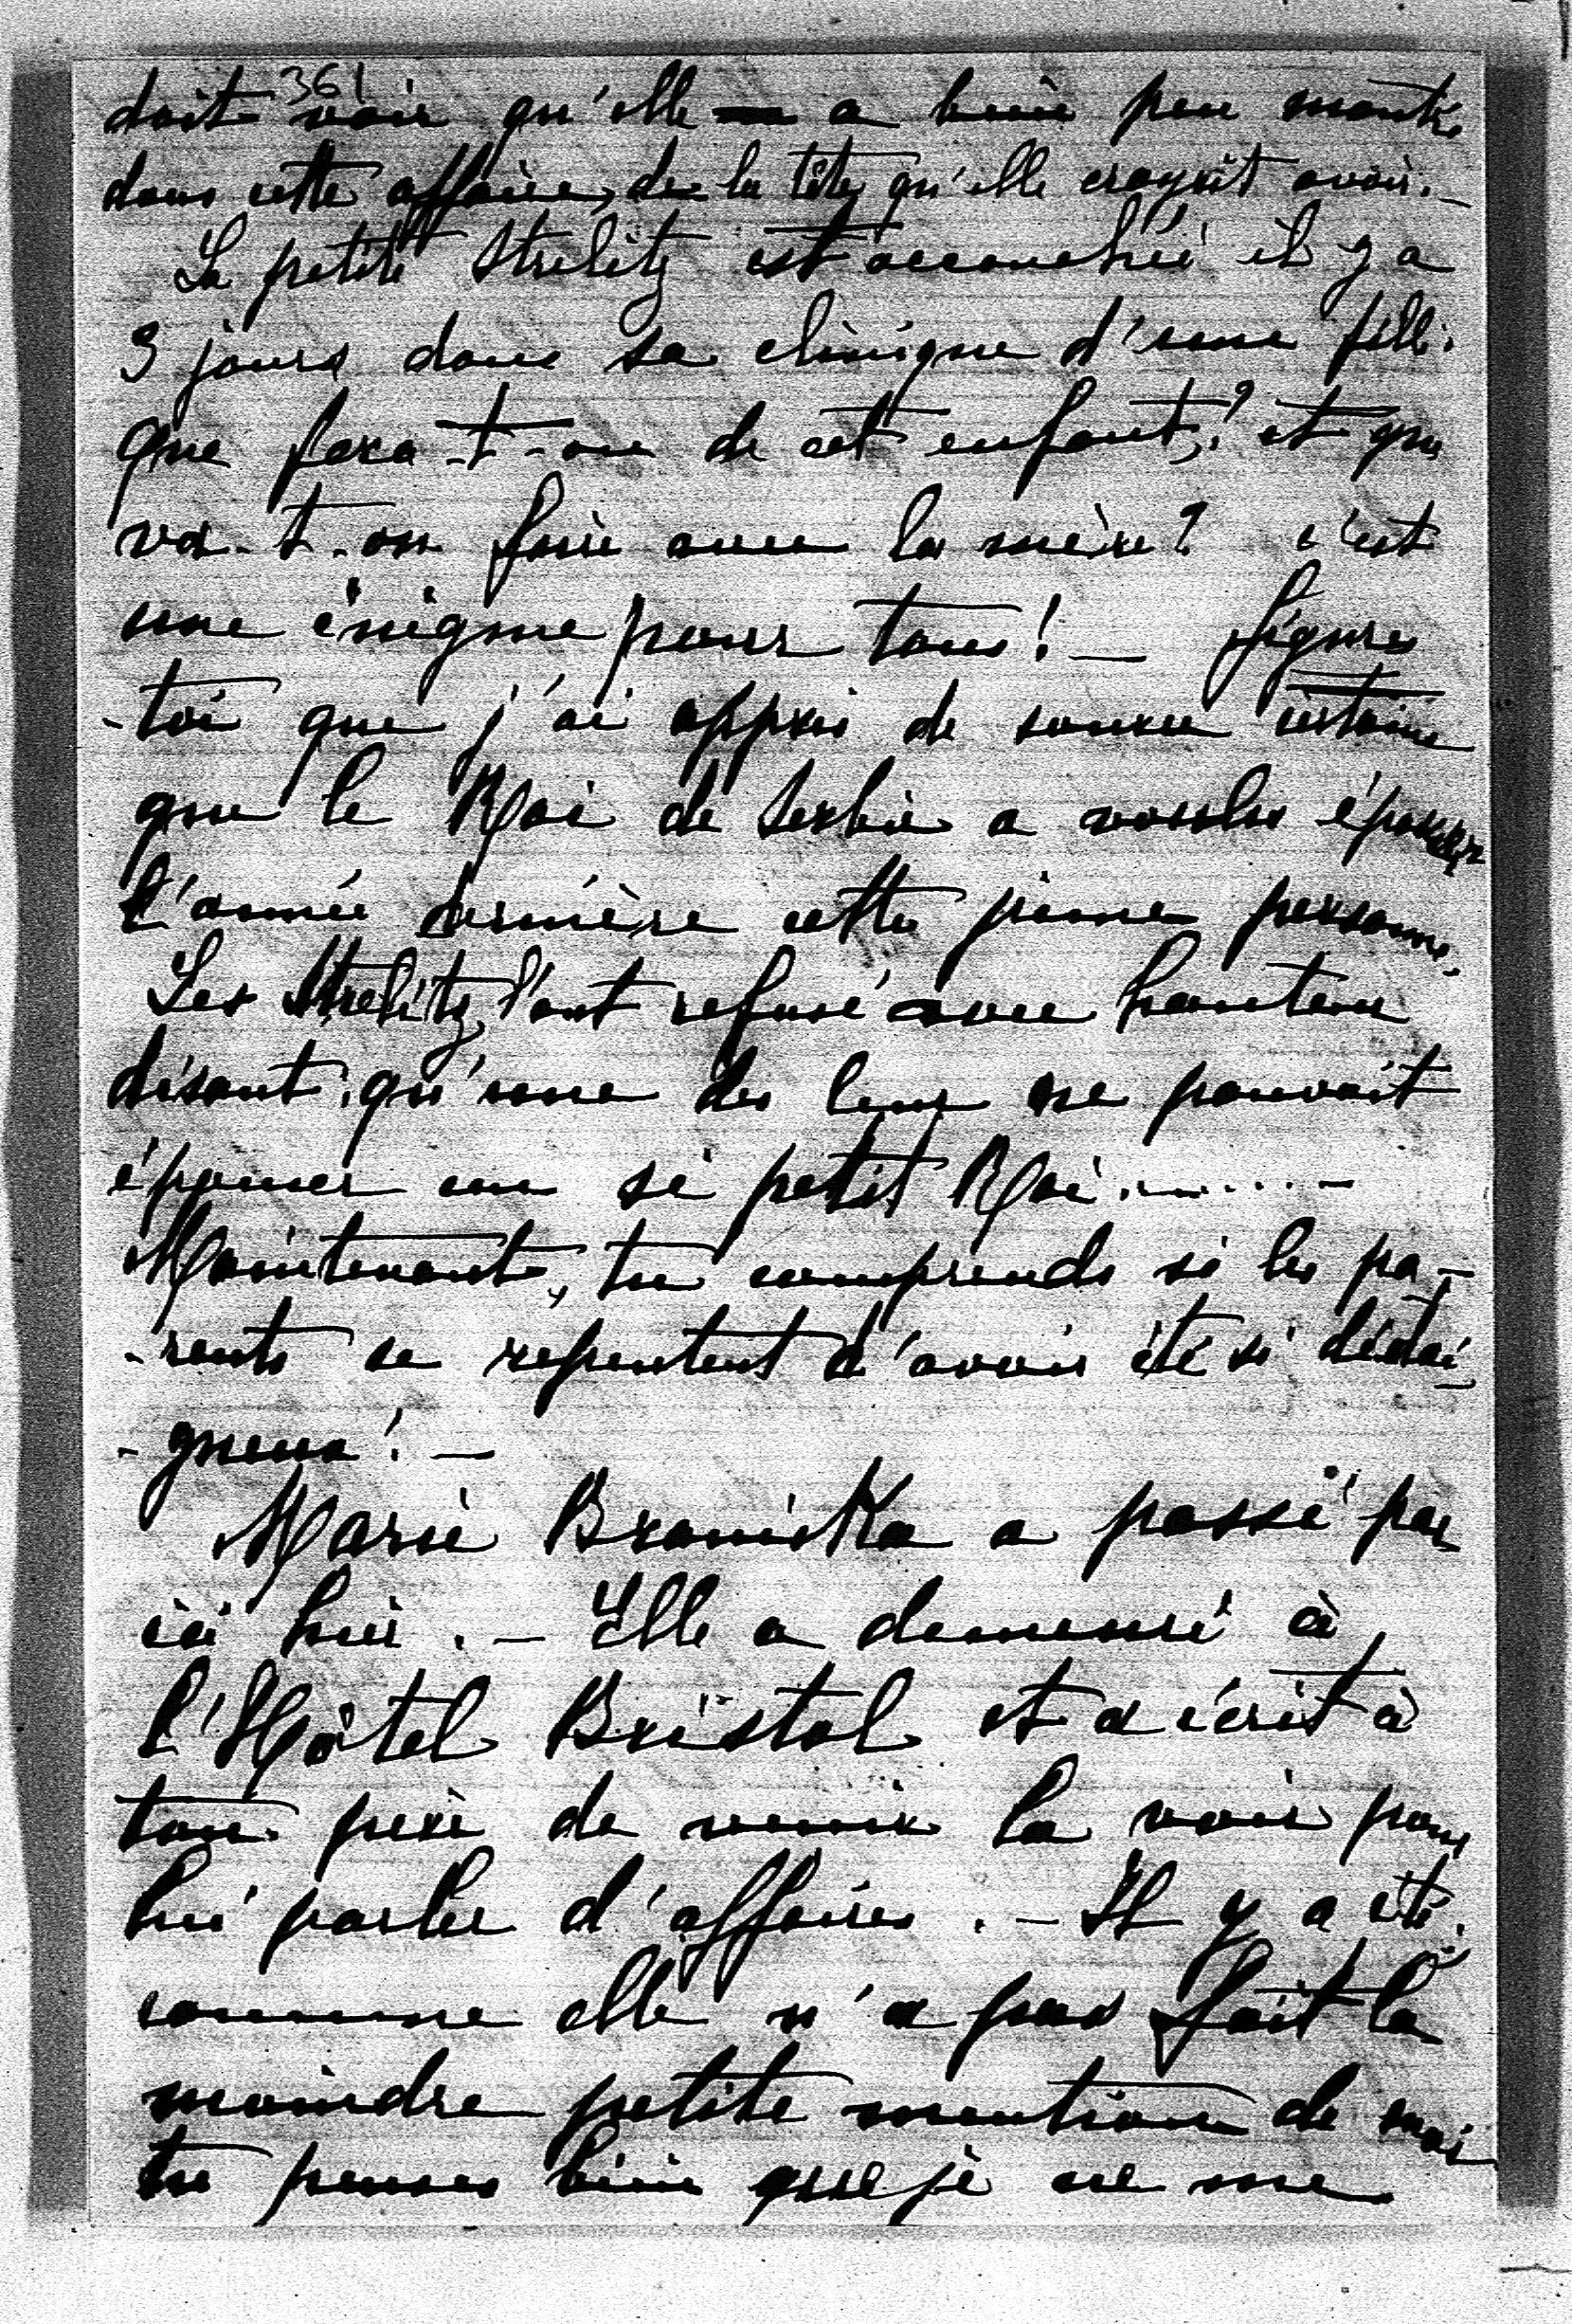 361
doit voir qu'elle a bien peu montré
dans cette affaire, de la tête qu'elle croyait avoir. _
La petite Strelitz est accouchée il y a
3 jours dans sa clinique d'une fille.
Que fera-t-on de cet enfant,? et que
va-t-on faire avec la mère? c'est
une énigme pour tous! _ Figures
-toi que j'ai appris de source certaine
que le Roi de Serbie a voulu épouser
l'année dernière cette jeune personne.
Les Strelitz l'ont refusé avec hauteur
disant qu'une des leurs ne pouvait
épouser un si petit Roi........-
Maintenant, tu comprends si les pa-
-rents se repentent d'avoir été si dédai-
-gneux! _
Marie Branicka a passé par
ici hier. _ Elle a demeuré à
l'Hôtel Bristol et a écrit à
ton père de venir la voir pour
lui parler d'affaires. _ Il y a été.
comme elle n'a pas fait la
moindre petite mention de moi
tu penses bien que je ne me